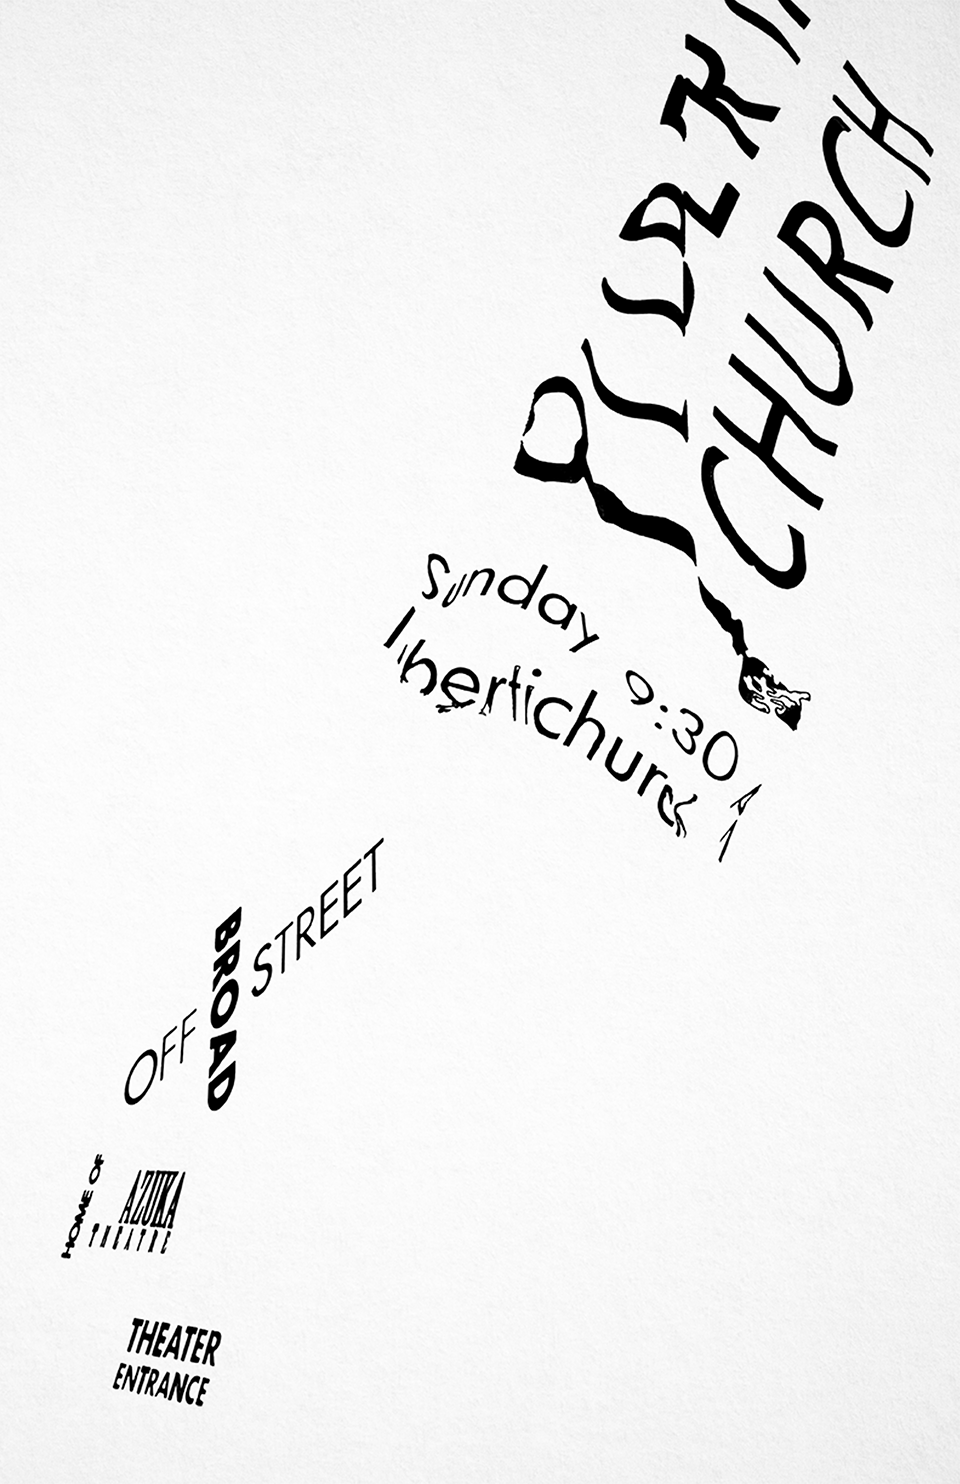 CHURCH
Sunday 9:30 A
OFF BROAD STREET
HOME OF
AZUKA
THEATRE
THEATER
ENTRANCE